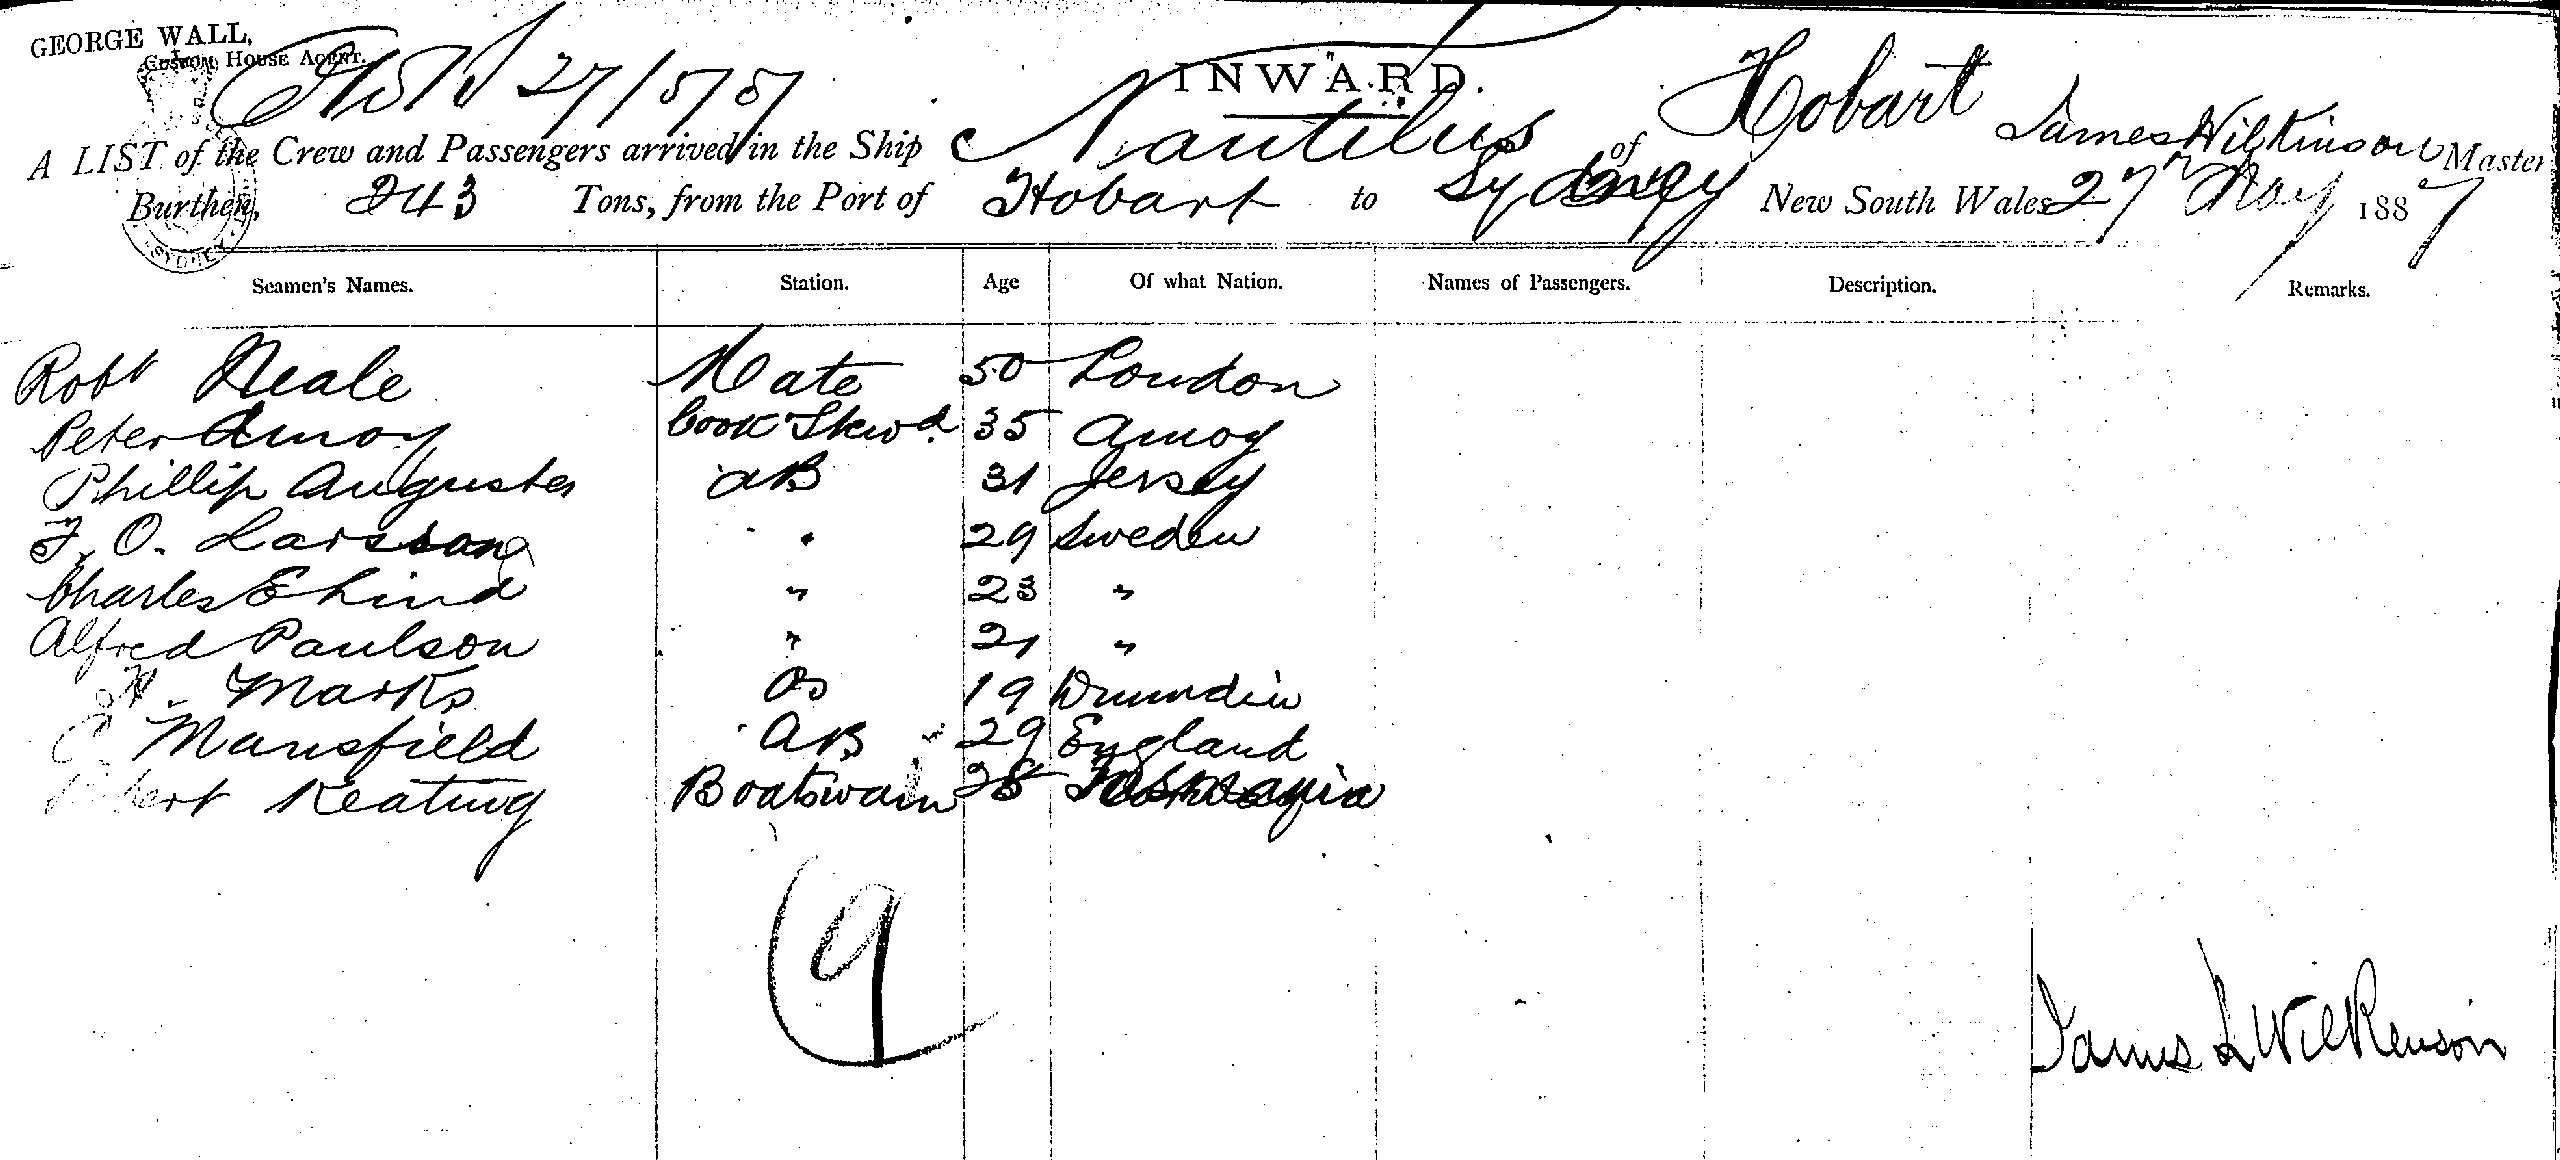 GEORGE WALL,
Custom House Agent.
27/5/87
INWARD.
A LIST of the Crew and Passengers arrived in the Ship Nautilus of Hobart James Wilkinson Master
Burthen, 243 Tons, from the Port of Hobart to Sydney New South Wales 27th May 1887
Seamen's Names. Station. Age Of what Nation. Names of Passengers. Description. Remarks.
Robt Neale Mate 50 London
Peter Amoy Cook Stewd. 35 Amoy
Phillip Auguster AB 31 Jersey
F. O. Larsson " 29 Sweden
Charles E Lind " 23 "
Alfred Paulson " 21 "
H. Marks OS 19
C Mansfield AB 29 England
Keating Boatswain 28 Tasmania
9
James L Wilkenson
SYDNEY